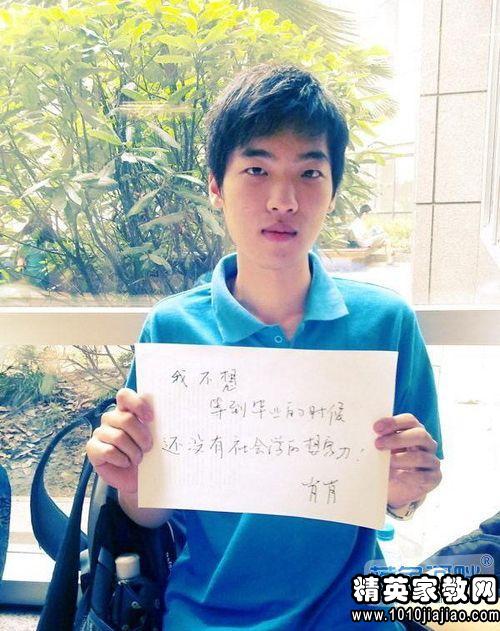 我不想
等到毕业的时候
还没有社会学的想象力!
肖肖
精英家教网
www.1010jiajiao.com